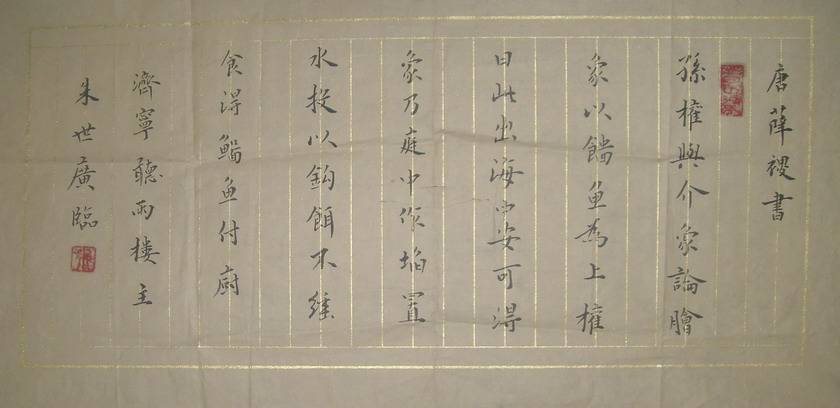 唐薛稷書
孫權與介象論膾
象以鯔魚為上權
曰此出海中安可得
象乃庭中作埳置
水投以鈎餌不緩
食得鯔魚付廚
濟寧聽雨楼主
朱世廣臨